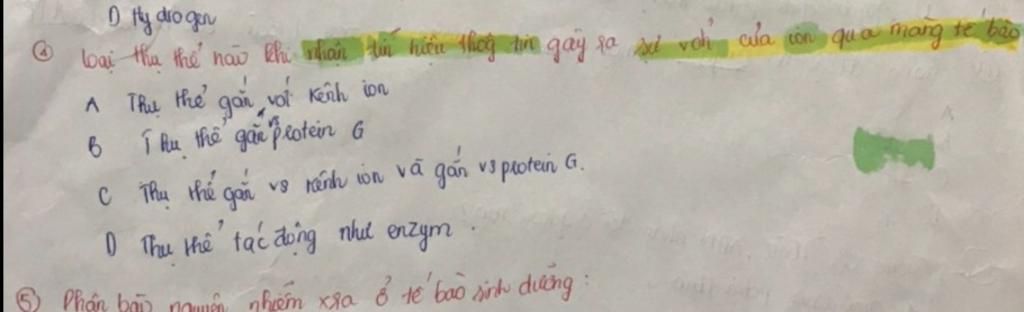 D Hydrogen
④ Loại thụ thể nào khi nhận tín hiệu thog tin gây ra sự vch của ion qua màng tế bào
A Thụ thể gắn với kênh ion
B Thụ thể gắn vs protein G
C Thụ thể gắn vs kênh ion và gắn vs protein G.
D Thụ thể tác động như enzym.
⑤ Phân bào nguyên nhiễm xra ở tế bào sinh dưỡng: